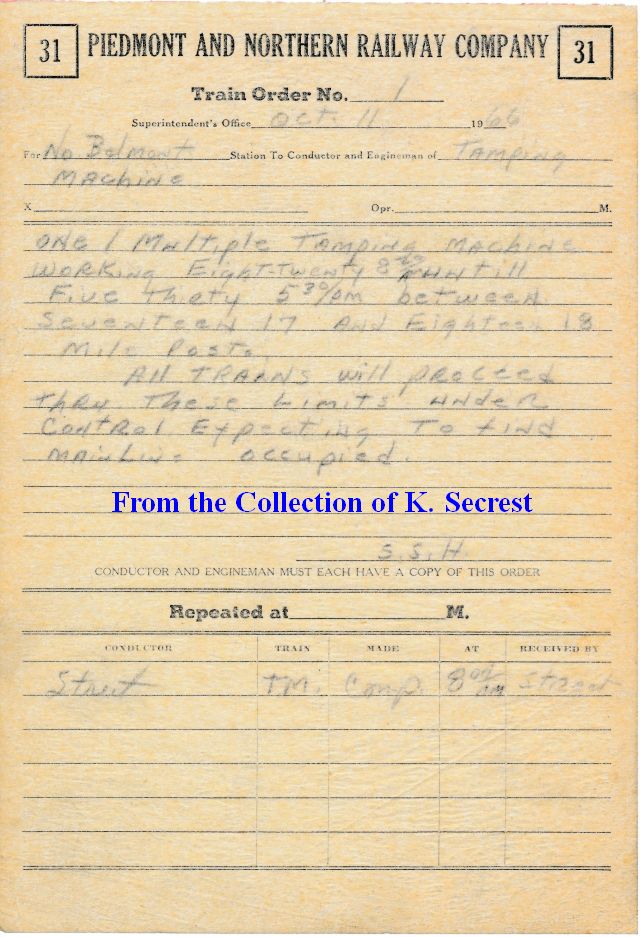 31 PIEDMONT AND NORTHERN RAILWAY COMPANY 31
Train Order No. 1
Superintendent's Office Oct. 11 1966
For No Belmont Station To Conductor and Engineman of Tamping
Machine
X Opr. M.
ONE 1 Multiple Tamping Machine
Working Eight-Twenty 8 20 till
Five Thirty 5 30/PM between
Seventeen 17 And Eighteen 18
Mile Posts.
All TRAINS will proceed
thru These Limits under
Control Expecting To find
MAINLine occupied.
From the Collection of K. Secrest
S.S.H.
CONDUCTOR AND ENGINEMAN MUST EACH HAVE A COPY OF THIS ORDER
Repeated at M.
CONDUCTOR TRAIN MADE AT RECEIVED BY
Street T.M. Comp. 8 AM Street